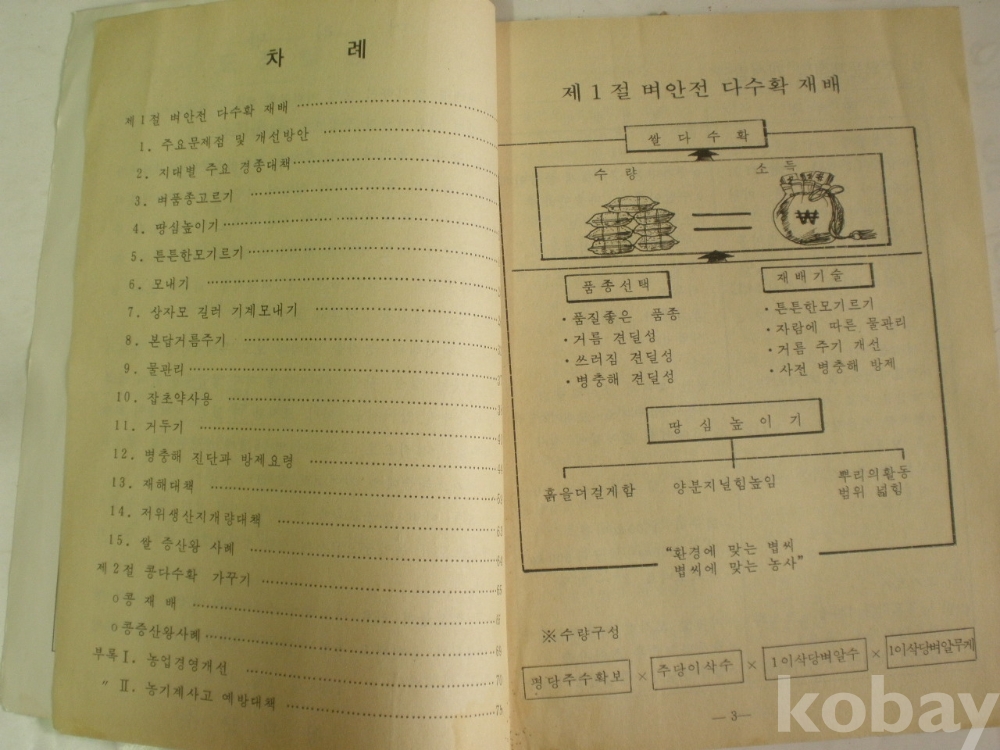 차 례
제1절 벼안전 다수확 재배
1. 주요문제점 및 개선방안
2. 지대별 주요 경종대책
3. 벼품종고르기
4. 땅심높이기
5. 튼튼한모기르기
6. 모내기
7. 상자모 길러 기계모내기
8. 본답거름주기
9. 물관리
10. 잡초약사용
11. 거두기
12. 병충해 진단과 방제요령
13. 재해대책
14. 저위생산지개량대책
15. 쌀 증산왕 사례
제2절 콩다수확 가꾸기
o콩 재 배
o콩증산왕사례
부록Ⅰ. 농업경영개선 70
〃 Ⅱ. 농기계사고 예방대책
제1절 벼안전 다수확 재배
쌀다수확
수 량 소 득
₩
품종선택 재배기술
·품질좋은 품종 ·튼튼한모기르기
·거름 견딜성 ·자람에 따른 물관리
·쓰러짐 견딜성 ·거름 주기 개선
·병충해 견딜성 ·사전 병충해 방제
땅심높이기
흙을더걸게함 양분지닐힘높임 뿌리의활동
범위 넓힘
“환경에 맞는 볍씨
볍씨에 맞는 농사”
※수량구성
평당주수확보 × 주당이삭수 × 1이삭당벼알수 × 1이삭당벼알무게
—3—
kobay